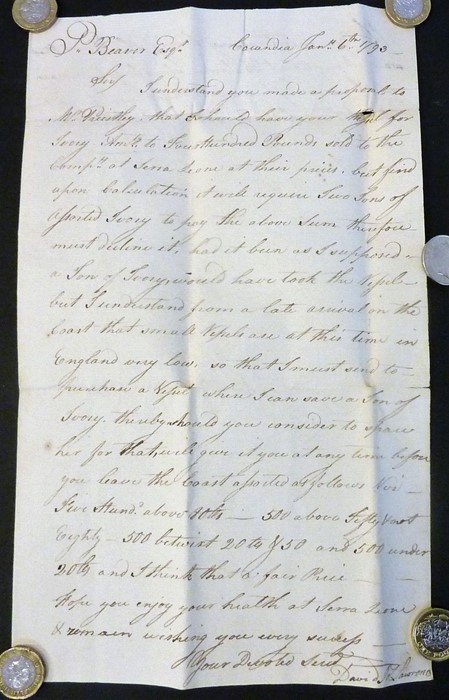 P. Beaver Esqr. Cacundia Jany. 6th 1793
Sir
I understand you made a proposal to
Mr. that I should have your Vessel for
Ivory Amt. to Four Hundred Pounds sold to the
Compy. at Serra Leone at their prices, but find
upon Calculation it will require Two Tons of
assorted Ivory to pay the above Sum therefore
must decline it, had it been as I supposed
a Ton of Ivory, would have took the Vessel
but I understand from a late arrival on the
Coast that small Vessels are at this time in
England very low, so that I must send to
purchase a Vessel where I can save a Ton of
Ivory thereby should you consider to spare
her for that, will give it you at any time before
you leave the Coast assorted as follows Viz
Five Hundd. above 80lb — 500 above Fifty & not
Eighty — 500 betwixt 20lb & 50 and 500 under
20lb and I think that a fair Price
Hope you enjoy your health at Serra Leone
& remain wishing you every success
Your Devoted Servt.
David Lawrence